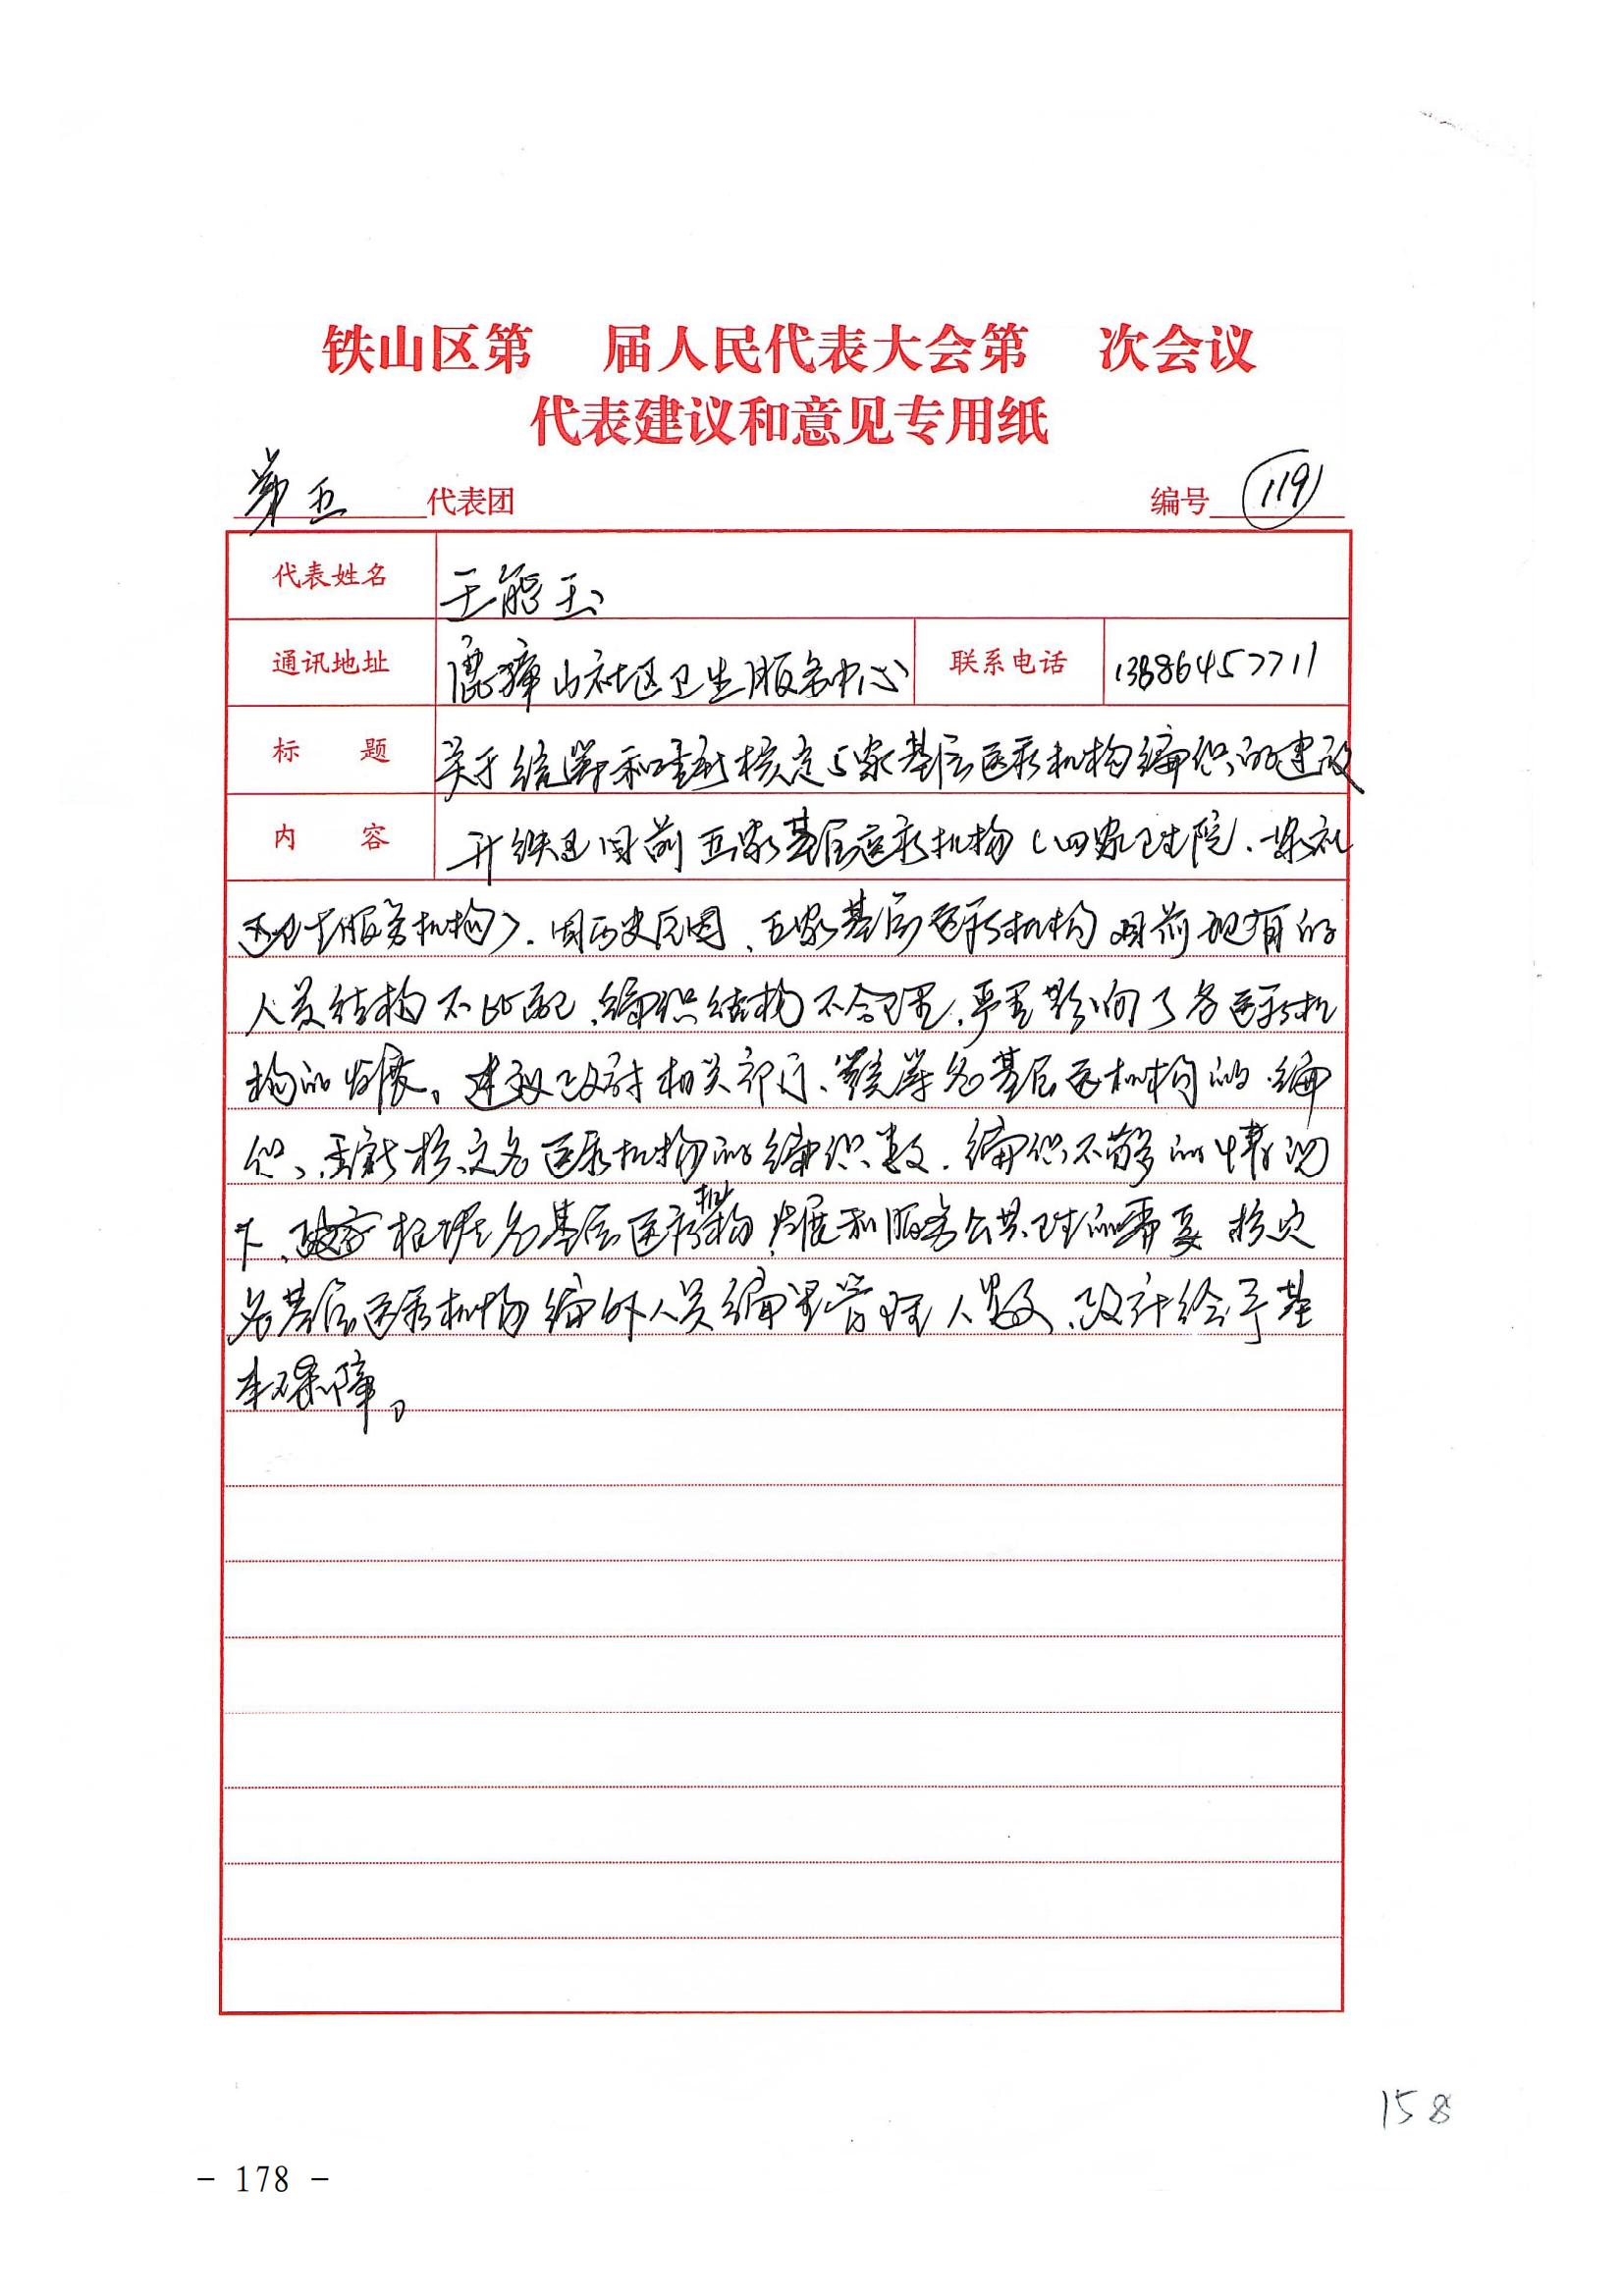 铁山区第 届人民代表大会第 次会议
代表建议和意见专用纸
第五 代表团 编号 119
代表姓名 王能玉
通讯地址 鹿獐山社区卫生服务中心 联系电话 13886457711
标 题 关于统筹和重新核定5家基层医疗机构编织的建议
内 容 开铁区目前五家基层医疗机构（四家卫生院、一家社
区卫生服务机构），因历史原因，五家基层医疗机构目前现有的
人员结构不匹配，编织结构不合理，严重影响了各医疗机
构的发展。建议政府相关部门、统筹各基层医机构的编
织、重新核定各医疗机构的编织数，编织不够的情况
下，政府根据各基层医疗机构发展和服务公共卫生的需要 核定
各基层医疗机构编外人员编置管理人员数，政府给予基
本保障。
158
- 178 -